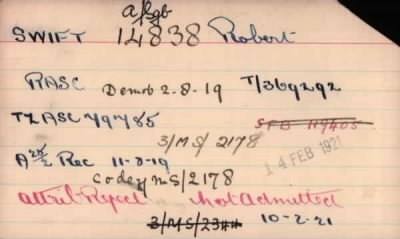 A/Sgt
SWIFT 14838 Robert
RASC Demob 2-8-19 T/369292
TZ ASC 79785 SFB 119405
3/MS/2178
14 FEB 1921
Rec 11-8-19
Codey MS/2178
Attrib Reject Not Admitted
3/MS/2344 10-2-21